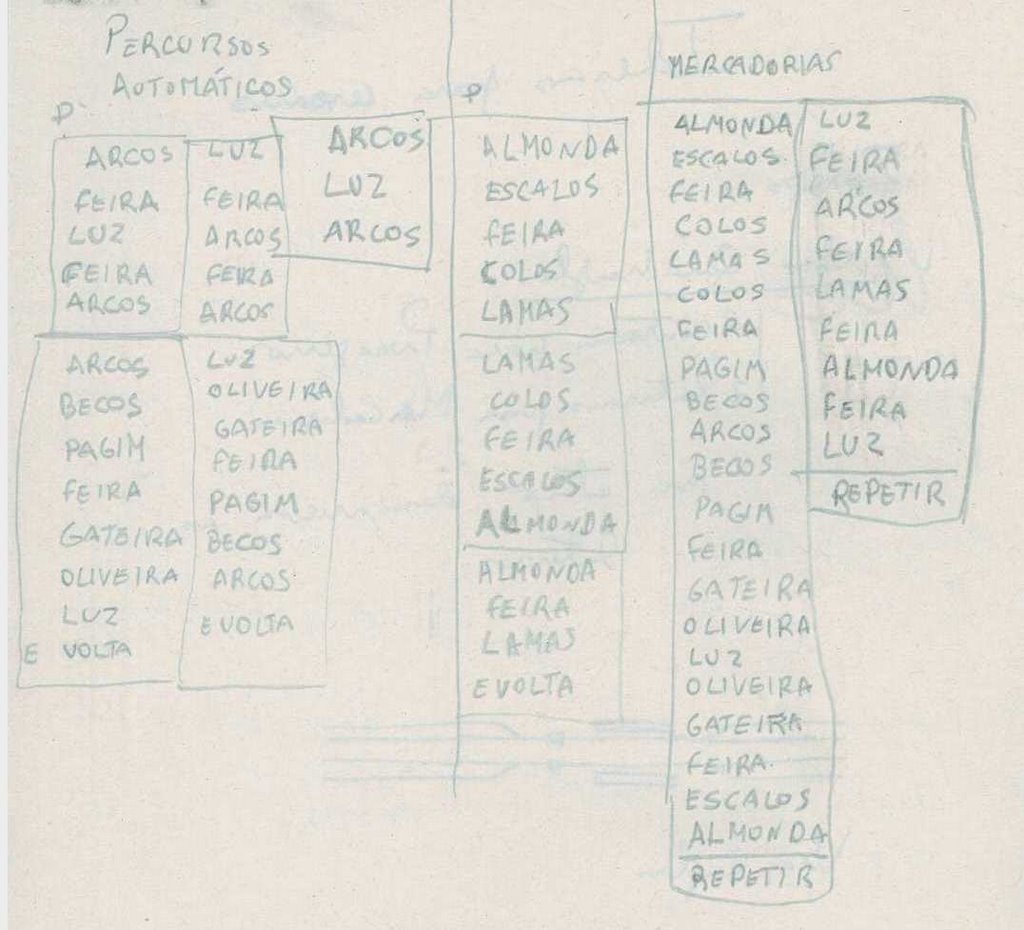 PERCURSOS
AUTOMÁTICOS
P
ARCOS
FEIRA
LUZ
FEIRA
ARCOS
LUZ
FEIRA
ARCOS
FEIRA
ARCOS
ARCOS
LUZ
ARCOS
ARCOS
BECOS
PAGIM
FEIRA
GATEIRA
OLIVEIRA
LUZ
E VOLTA
LUZ
OLIVEIRA
GATEIRA
FEIRA
PAGIM
BECOS
ARCOS
E VOLTA
P
ALMONDA
ESCALOS
FEIRA
COLOS
LAMAS
LAMAS
COLOS
FEIRA
ESCALOS
ALMONDA
ALMONDA
FEIRA
LAMAS
E VOLTA
MERCADORIAS
ALMONDA
ESCALOS
FEIRA
COLOS
LAMAS
COLOS
FEIRA
PAGIM
BECOS
ARCOS
BECOS
PAGIM
FEIRA
GATEIRA
OLIVEIRA
LUZ
OLIVEIRA
GATEIRA
FEIRA
ESCALOS
ALMONDA
REPETIR
LUZ
FEIRA
ARCOS
FEIRA
LAMAS
FEIRA
ALMONDA
FEIRA
LUZ
REPETIR